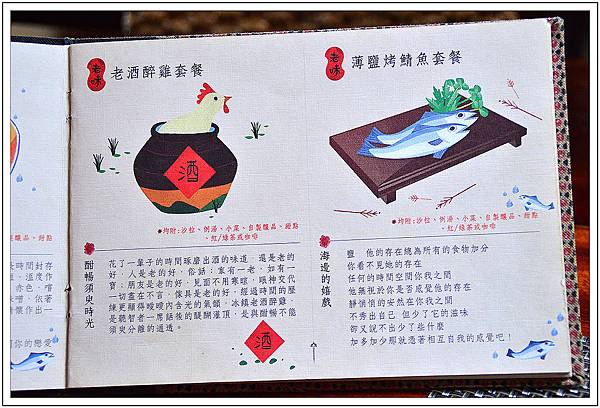 老味
老酒醉雞套餐
酒
※均附:沙拉、例湯、小菜、自製釀品、甜點
、紅/綠茶或咖啡
酣暢須臾時光
花了一輩子的時間琢磨出酒的味道，還是老的
好，人是老的好，俗話：家有一老，如有一
寶；朋友是老的好，見面不用寒暄，眼神交代
一切盡在不言，傢具是老的好，經過時間的墨
練更顯得曖曖內含光的氣韻，冰鎮老酒醉雞，
是聽智者一席話後的醍醐灌頂，是與酣暢不能
須臾分離的通透。
酒
老味
薄鹽烤鯖魚套餐
※均附:沙拉、例湯、小菜、自製釀品、甜點
、紅/綠茶或咖啡
海邊的嬉戲
鹽 他的存在總為所有的食物加分
你看不見她的存在
任何的時間空間你我之間
他無視於你是否感覺他的存在
靜悄悄的安然在你我之間
不秀出自己 但少了它的滋味
卻又說不出少了些什麼
加多加少那就憑著相互自我的感覺吧！
自製釀品、甜點
時間封存
，溫度作
，赤色，嚐
嚐，依著
情釀作出一
你的戀愛